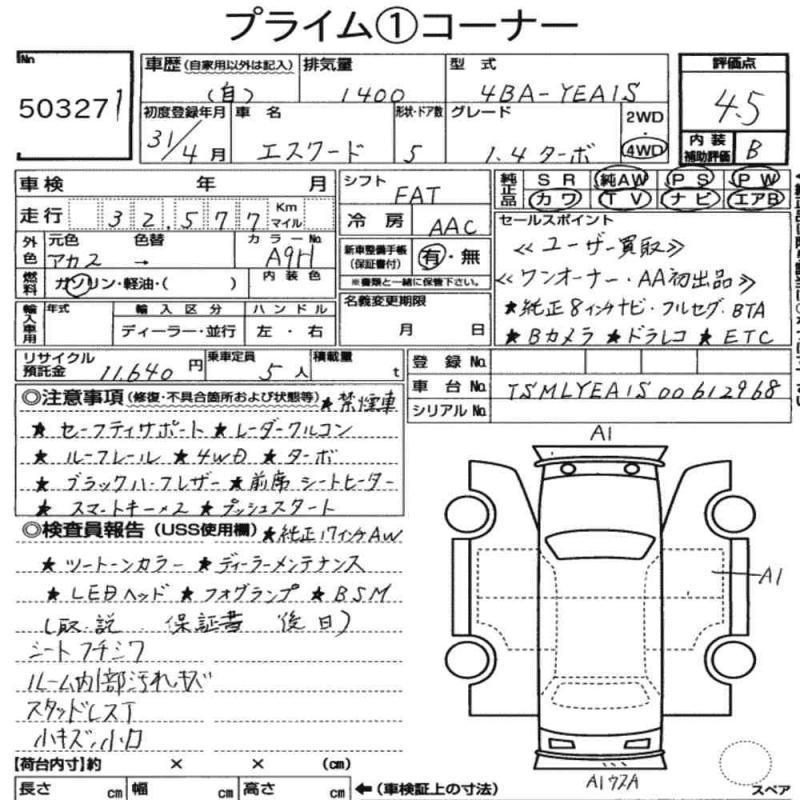 プライム①コーナー
No
50327 1
車歴 (自家用以外は記入)
(自)
排気量
1400
型式
4BA-YEA1S
評価点
4.5
初度登録年月
31/4月
車名
エスクード
形状・ドア数
5
グレード
1.4 ターボ
2WD
・
4WD
内装
補助評価
B
車検 年 月
シフト
FAT
純正品
SR 純AW PS PW
カワ TV ナビ エアB
走行 32,577 Km マイル
冷房
AAC
セールスポイント
≪ユーザー買取≫
≪ワンオーナー・AA初出品≫
★純正8インチナビ・フルセグ・BTA
★Bカメラ ★ドラレコ ★ETC
外色
元色 色替
アカ2 →
カラーNo
A9H
新車整備手帳
(保証書付)
有・無
※書類と一緒に保管下さい。
燃料
ガソリン・軽油・( )
内装色
名義変更期限
月 日
輸入車用
年式
輸入区分
ディーラー・並行
ハンドル
左・右
リサイクル
預託金
11,640円
乗車定員
5人
積載量
t
登録No
車台No
TSMLYEA1S00612968
シリアルNo
◎注意事項 (修復・不具合箇所および状態等) ★禁煙車
★セーフティサポート ★レーダークルコン
★ルーフレール ★4WD ★ターボ
★ブラックハーフレザー ★前席シートヒーター
★スマートキー×2 ★プッシュスタート
◎検査員報告 (USS使用欄) ★純正17インチAW
★ツートーンカラー ★ディーラーメンテナンス
★LEDヘッド ★フォグランプ ★BSM
(取・説 保証書 後日)
シートフチシワ
ルーム内部汚れキズ
スタッドレスT
小キズ、小凹
【荷台内寸】約 × × (cm)
長さ cm 幅 cm 高さ cm
←(車検証上の寸法)
A1
A1
スペア